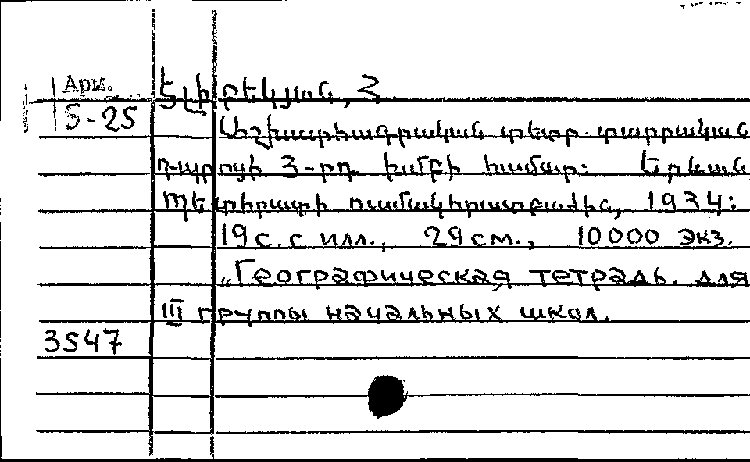 Арм.
5-25
Էլիբեկյան, Հ.
Աշխարհագրական տետր տարրական
դպրոցի 3-րդ խմբի համար: Երևան
Պետհրատի ուսմանկհրատբաժին, 1934:
19 с. с илл., 29 см., 10000 экз.
„Географическая тетрадь. для
III группы начальных школ.
3547